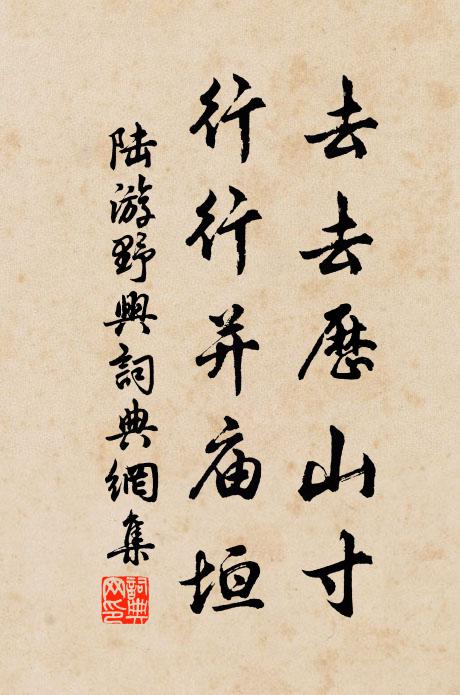 去去歷山寸
行行并庙垣
陆游野興詞典網集
詞典網印